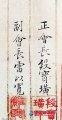 正會長段寶璜
副會長雷以寬